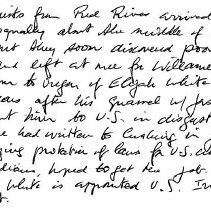 from Red River arrived
about the middle of
but they soon discovered poor
and left at once for Willamette
to Oregon of Elijah White
after his quarrel with
him to U.S. in disgust
had written to Cushing in
protection of laws for U.S.
hoped to get the job.
White is appointed U.S. In